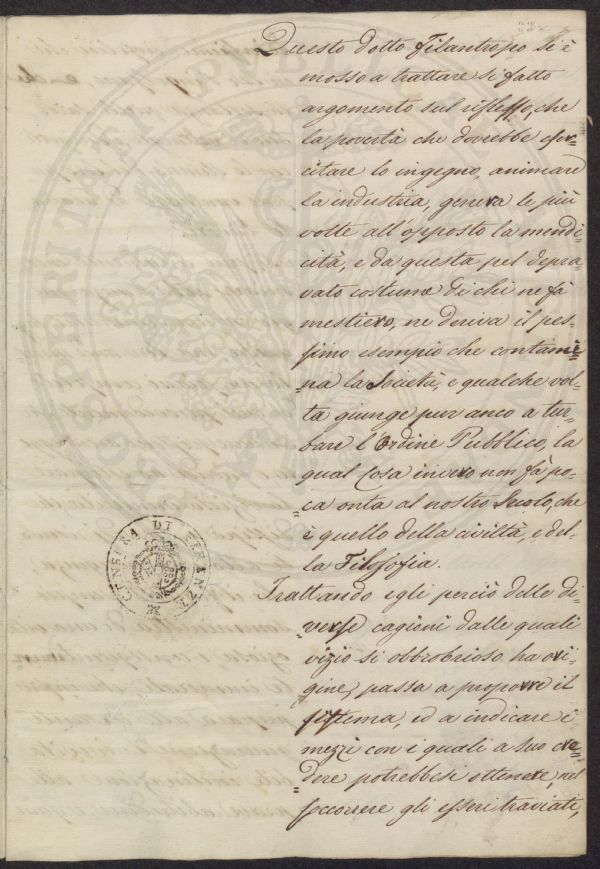 Questo dotto Filantropo si è
mosso a trattare si fatto
argomento sul riflesso, che
la povertà che dovrebbe eser-
citare lo ingegno, animare
la industria, genera le più
volte all'opposto la mendi-
cità, e da questa pel depra-
vato costume di chi ne fà
mestiero, ne deriva il pes-
simo esempio che contami-
na la Società, e qualche vol-
ta giunge pur anco a tur-
bare l'Ordine Pubblico, la
qual Cosa invero non fà po-
ca onta al nostro Secolo, che
è quello della civiltà, e del-
la Filosofia.
Trattando egli perciò delle di-
verse cagioni dalle quali
vizio si obbrobrioso ha ori-
gine, passa a proporre il
sistema, ed a indicare i
mezzi con i quali a suo cre-
dere potrebbesi ottenere, nel
soccorrere gli esseri traviati,
CENSURA DI FIRENZE